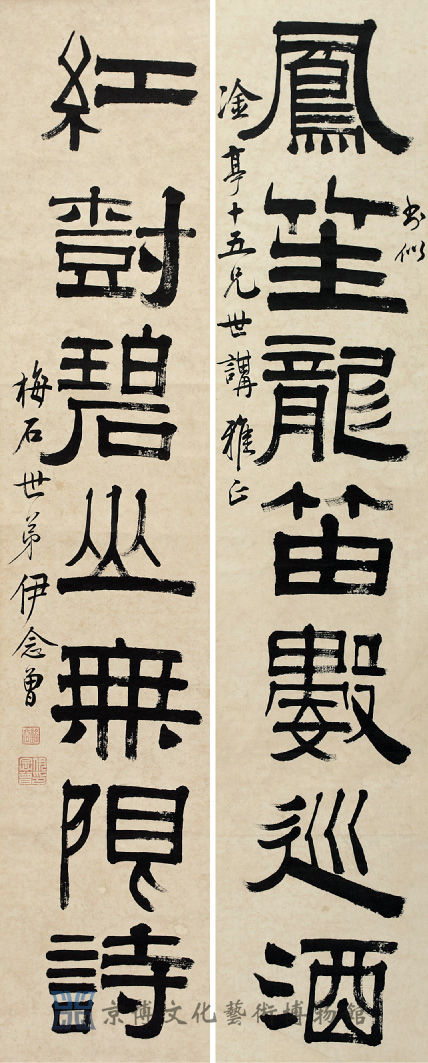 鳳笙龍笛數巡酒
書似
淦亭十五兄世講雅正
紅樹碧山無限詩
梅石世弟伊念曾
京博文化藝術博物館